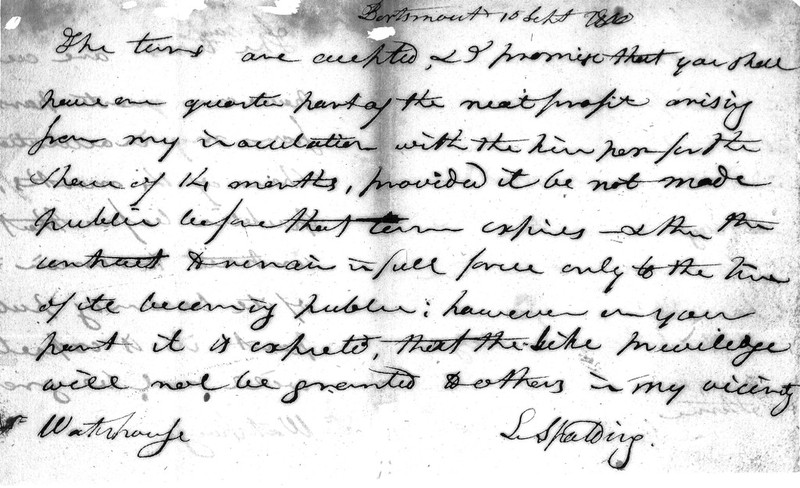 Portsmouth 10 Sept 1800
The terms are accepted, & I promise that you shall
have one quarter part of the neat profit arising
from my inoculation with the kine pox for the
space of 14 months, provided it be not made
public before that term expires – & then the
contract to remain in full force only to the time
of its becoming public: however on your
part it is expected, that the like priviledge
will not be granted to others in my vicinity
Waterhouse L. Spalding.